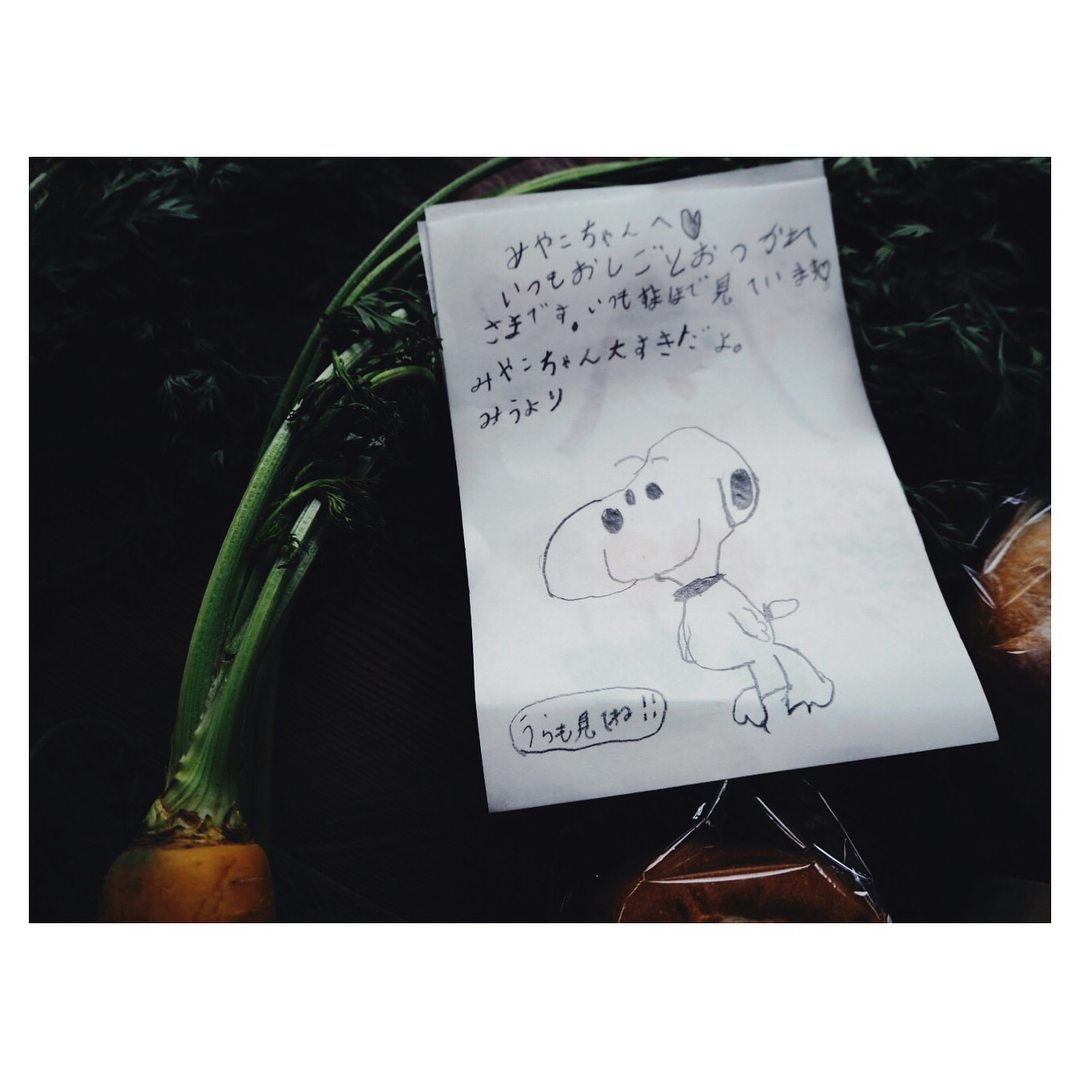 みやこちゃんへ♡
いつもおしごとおつかれ
さまです。いつも 見ています
みやこちゃん大すきだよ。
みうより
うらも見てね!!